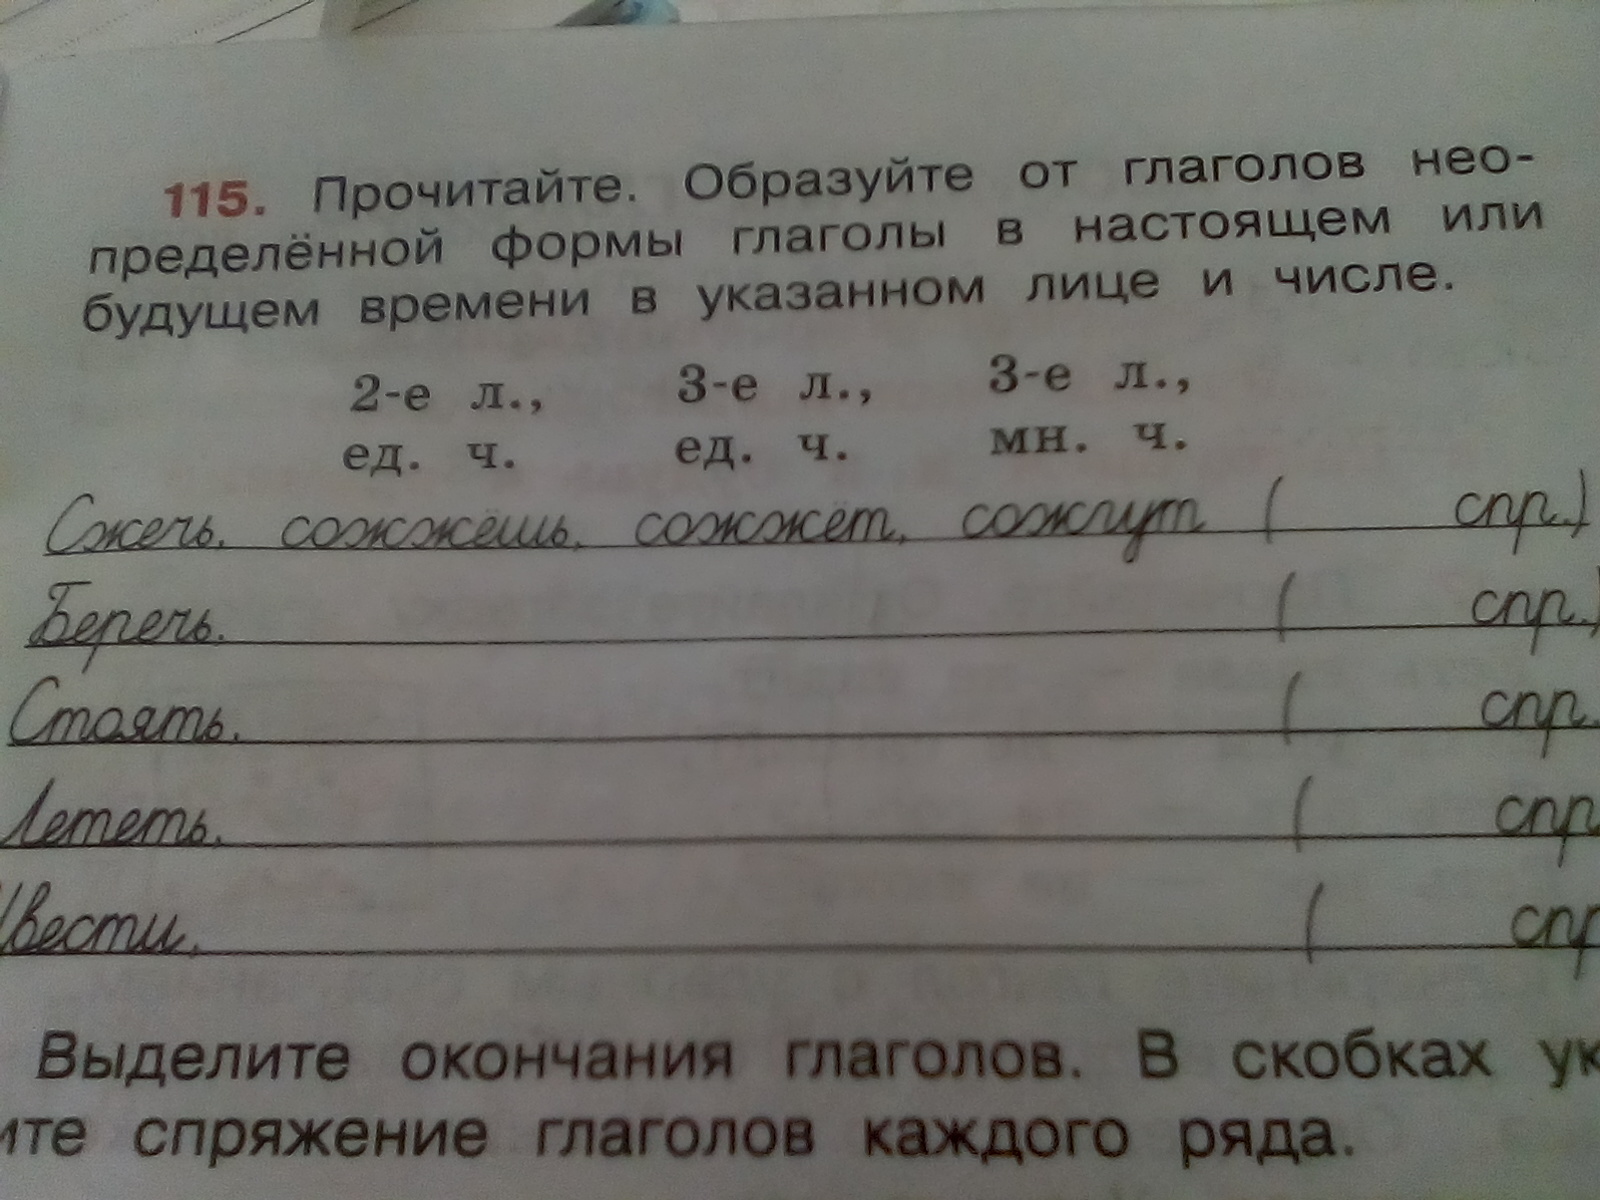 115. Прочитайте. Образуйте от глаголов нео-
пределённой формы глаголы в настоящем или
будущем времени в указанном лице и числе.
2-е л., 3-е л., 3-е л.,
ед. ч. ед. ч. мн. ч.
Сжечь, сожжёшь, сожжёт, сожгут ( спр.)
Беречь, ( спр.)
Стоять, ( спр.
Лететь, ( спр
Цвести, ( спр
Выделите окончания глаголов. В скобках ук
ите спряжение глаголов каждого ряда.